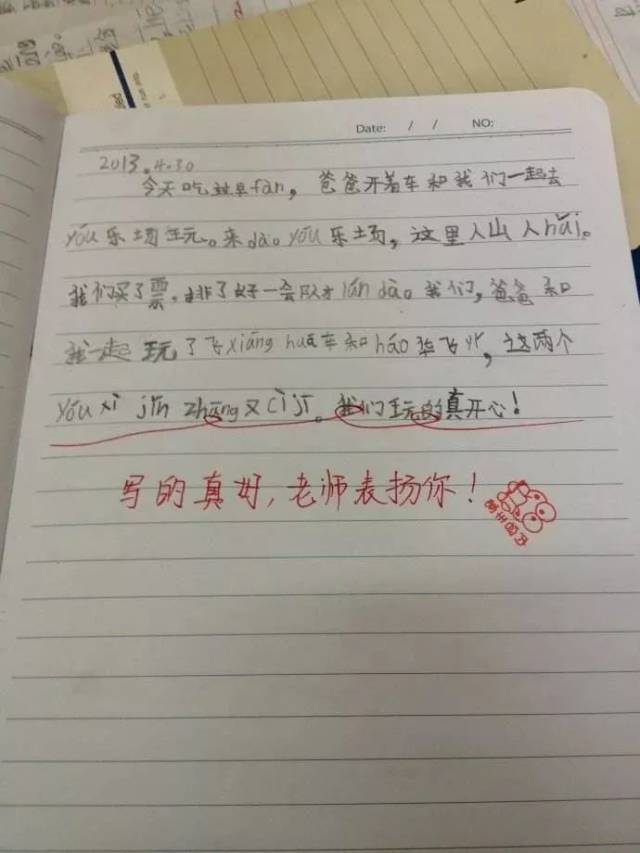 Date: / / NO:
2013.4.30
今天吃过早fàn，爸爸开着车和我们一起去
yóu乐场玩。来dào yóu乐场，这里人山人hǎi。
我们买了票，排了好一会队才lún dào我们，爸爸和
我一起玩了飞xiáng huá车和háo华飞片，这两个
yóu xì jǐn zhāng又cì jī。我们玩的真开心！
写的真好，老师表扬你！